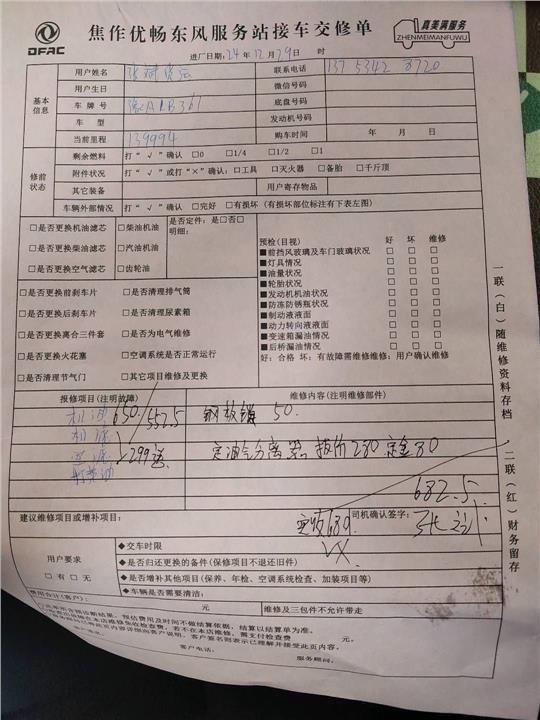 DFAC
焦作优畅东风服务站接车交修单
真美满服务
ZHENMEIMANFUWU
进厂日期:24年12月29日 时
基本信息
用户姓名
联系电话 137 5342 8720
用户生日 微信号码
车牌号 豫ALB361 底盘号码
车型 发动机号码
当前里程 139994 购车时间 年 月 日
修前状态
剩余燃料 打“√”确认 □0 □1/4 □1/2 □1
附件状况 打“√”或打“×”确认:□工具 □灭火器 □备胎 □千斤顶
其它装备 用户寄存物品
车辆外部情况 打“√”确认 □完好 □有损坏(有损坏部位标注有下表左图)
□是否更换机油滤芯 □柴油机油
□是否更换柴油滤芯 □汽油机油
□是否更换空气滤芯 □齿轮油
是否定件:是□否□
明细:
□是否更换前刹车片 □是否清理排气筒
□是否更换后刹车片 □是否清理尿素箱
□是否更换离合三件套 □是否为电气维修
□是否更换火花塞 □空调系统是否正常运行
□是否清理节气门 □其它项目维修及更换
预检(目视) 好 坏 维修
■前挡风玻璃及车门玻璃状况 □ □ □
■灯具情况 □ □ □
■油量状况 □ □ □
■轮胎状况 □ □ □
■发动机机油状况 □ □ □
■防冻防锈瓶状况 □ □ □
■制动液液面 □ □ □
■动力转向液液面 □ □ □
■变速箱漏油情况 □ □ □
■后桥漏油情况 □ □ □
好:合格 坏:有故障需维修维修:用户确认维修
报修项目(注明故障) 维修内容(注明维修部件)
机油 650/552.5 50.
机滤
299 定油气分离器 报价280 定金80
柴油
682.5
建议维修项目或增补项目:
682 司机确认签字:
VX
用户要求
□有 □无
◆交车时限
◆是否归还更换的备件(保修项目不退还旧件)
◆是否增补其他项目(保养、年检、空调系统检查、加装项目等)
◆车辆是否需要清洁:
费用合计(客户): 元 维修及三包件不允许带走
预估费用及时间不做结算依据,结算以结算单为准。
若不在本店维修,需支付检查费 元。
客户签名则表示已理解并接受此页内容。
客户电话: 服务顾问:
一联(白)随维修资料存档
二联(红)财务留存